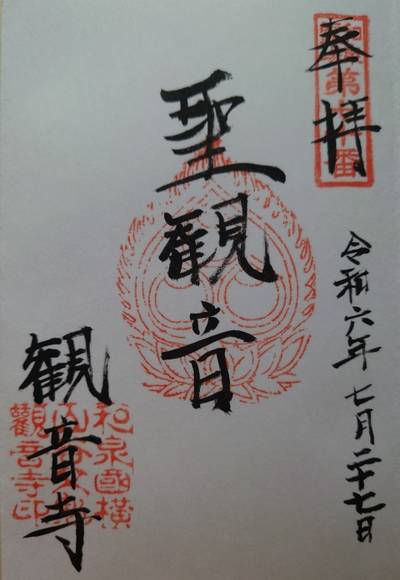 奉拝
令和六年 七月二十七日
聖観音
観音寺
和泉國横
觀音寺印